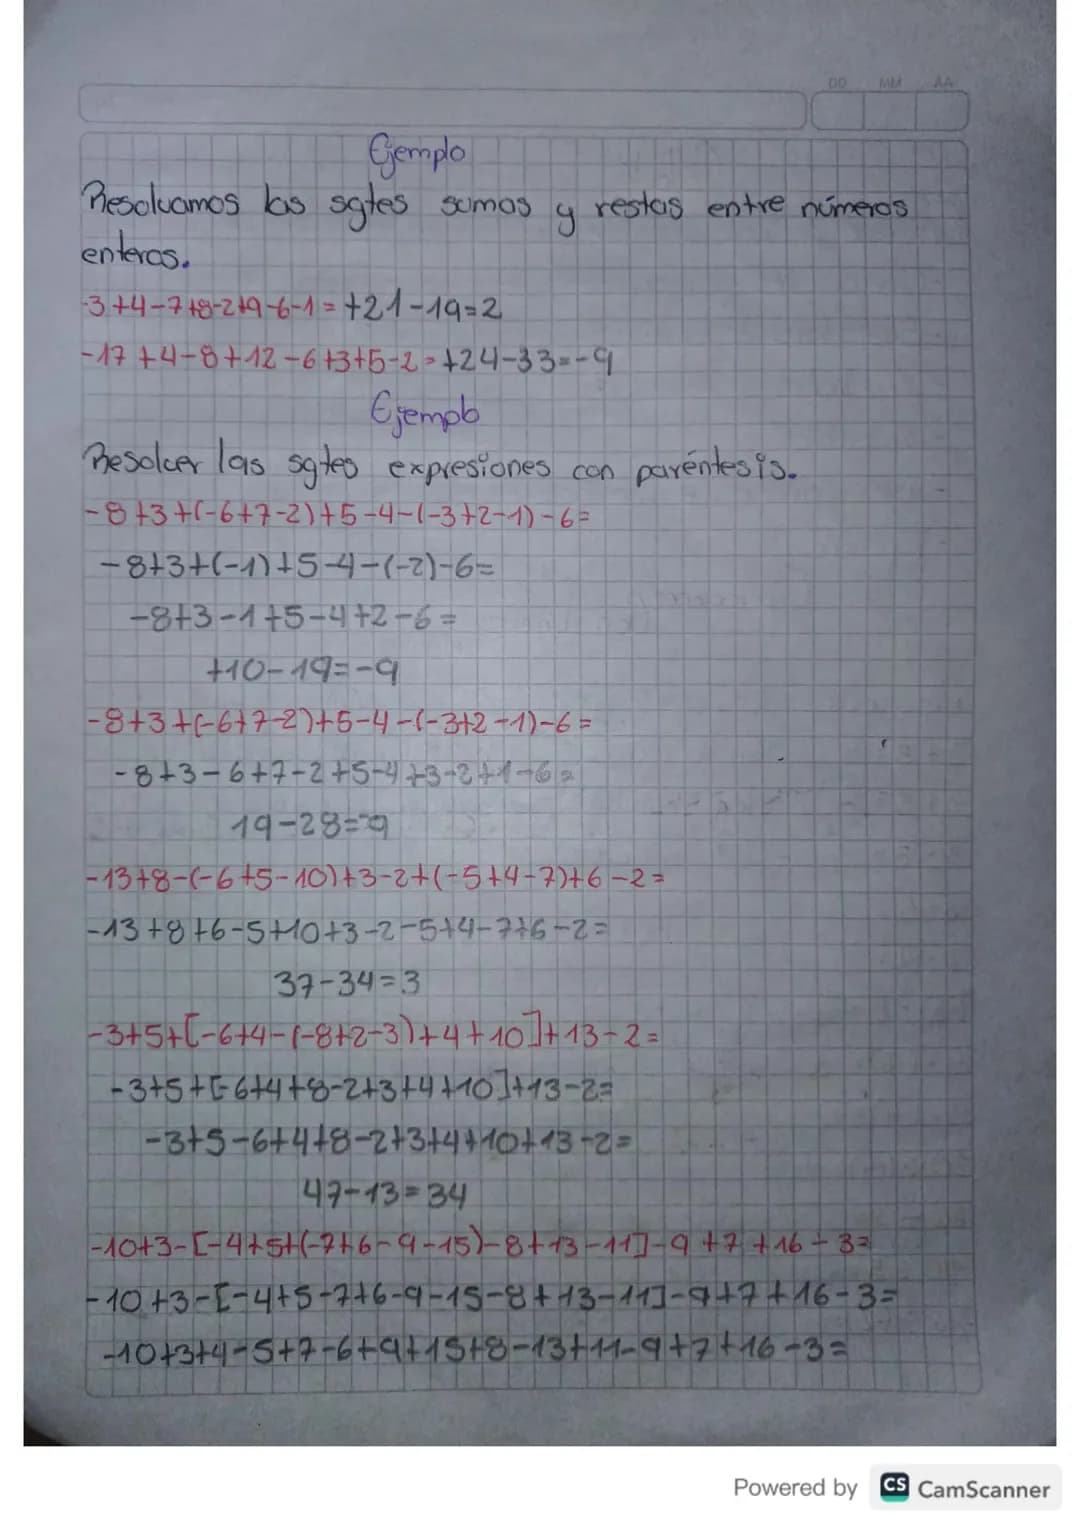 DD MM AA
Ejemplo
Resolvamos las sgtes sumas y restas entre números
enteros.
-3+4-7+8-2+9-6-1=+21-19=2
-17+4-8+12-6+3+5-2=+24-33=-9
Ejemplo
Resolver las sgtes expresiones con paréntesis.
-8+3+(-6+7-2)+5-4-(-3+2-1)-6=
-8+3+(-1)+5-4-(-2)-6=
-8+3-1+5-4+2-6=
+10-19=-9
-8+3+(-6+7-2)+5-4-(-3+2-1)-6=
-8+3-6+7-2+5-4+3-2+1-6=
19-28=-9
-13+8-(-6+5-10)+3-2+(-5+4-7)+6-2=
-13+8+6-5+10+3-2-5+4-7+6-2=
37-34=3
-3+5+[-6+4-(-8+2-3)+4+10]+13-2=
-3+5+[-6+4+8-2+3+4+10]+13-2=
-3+5-6+4+8-2+3+4+10+13-2=
47-13=34
-10+3-[-4+5+(-7+6-9-15)-8+13-11]-9+7+16-3=
-10+3-[-4+5-7+6-9-15-8+13-11]-9+7+16-3=
-10+3+4-5+7-6+9+15+8-13+11-9+7+16-3=
Powered by CS CamScanner